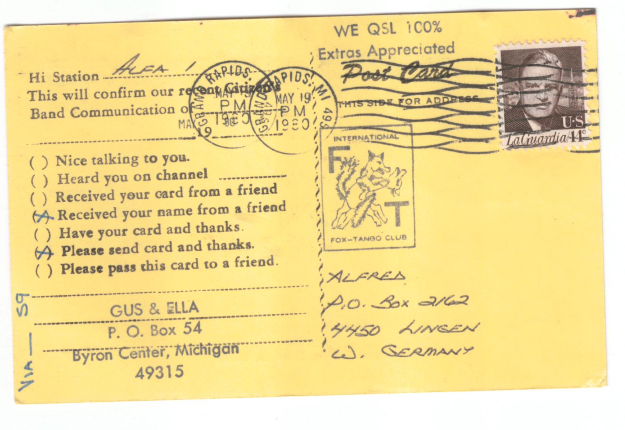 WE QSL 100%
Extras Appreciated
Post Card
THIS SIDE FOR ADDRESS
Hi Station ALFA 1
This will confirm our recent Citizens
Band Communication of
19
GRAND RAPIDS, MI 495
MAY 19
PM
1980
GRAND RAPIDS, MI 495
MAY 19
PM
1980
U.S
LaGuardia 14c
( ) Nice talking to you.
( ) Heard you on channel
( ) Received your card from a friend
(X) Received your name from a friend
( ) Have your card and thanks.
(X) Please send card and thanks.
( ) Please pass this card to a friend.
INTERNATIONAL
F
T
FOX-TANGO CLUB
GUS & ELLA
P. O. Box 54
Byron Center, Michigan
49315
VIA — 59
ALFRED
P.O. Box 2162
4450 LINGEN
W. GERMANY